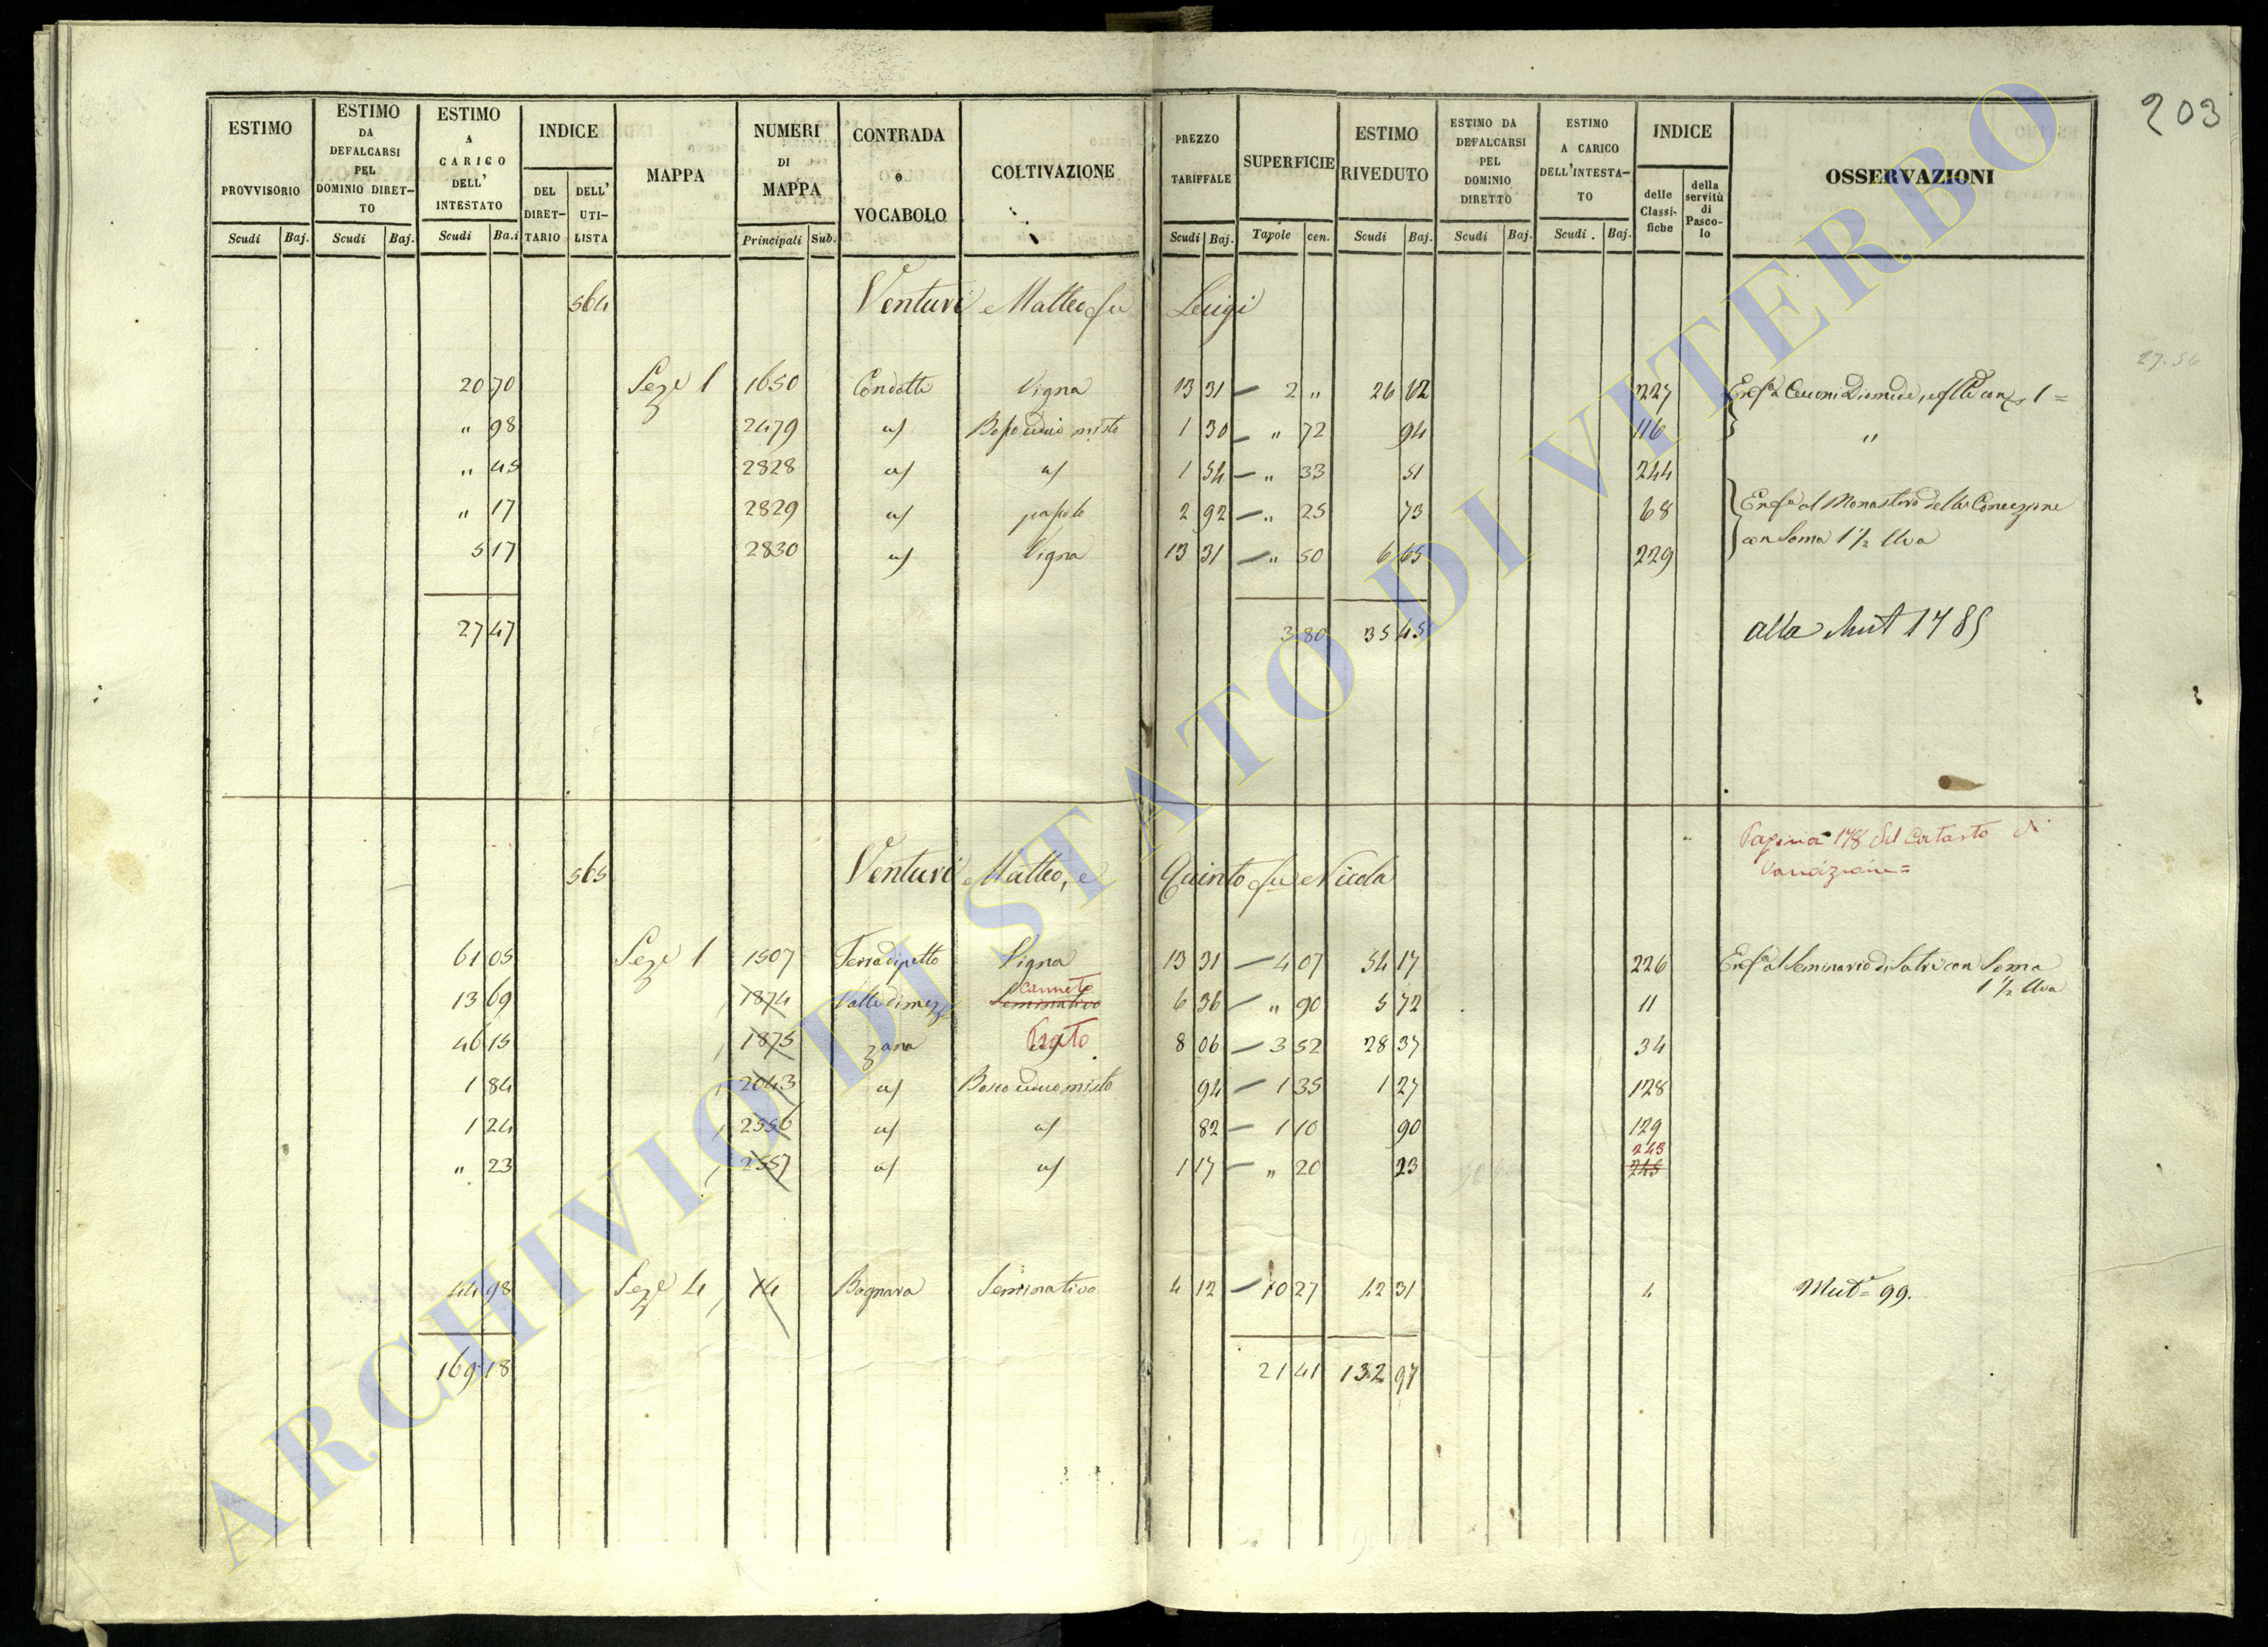 203
ESTIMO PROVVISORIO Scudi Baj.
ESTIMO DA DEFALCARSI PEL DOMINIO DIRETTO Scudi Baj.
ESTIMO A CARICO DELL' INTESTATO Scudi Ba.i
INDICE DEL DIRETTARIO DELL' UTILISTA
MAPPA
NUMERI DI MAPPA Principali Sub.
CONTRADA o VOCABOLO
COLTIVAZIONE
PREZZO TARIFFALE Scudi Baj.
SUPERFICIE Tapole cen.
ESTIMO RIVEDUTO Scudi Baj.
ESTIMO DA DEFALCARSI PEL DOMINIO DIRETTO Scudi Baj.
ESTIMO A CARICO DELL'INTESTATO Scudi. Baj.
INDICE delle Classifiche della servitù di Pascolo
OSSERVAZIONI
564 Venturi Matteo fu Luigi
27.56
20 70 Seze 1 1650 Condotte Vigna 13 31 — 2 " 26 62 227 Enfa Diomede, con 1 =
" 98 2479 a/ Bosco ceduo misto 1 30 — " 72 94 116 "
" 45 2828 a/ a/ 1 54 — " 33 51 244
" 17 2829 a/ pascolo 2 92 — " 25 73 68 Enfa al Monastero della Concezione
5 17 2830 a/ Vigna 13 31 — " 50 6 65 229 con Soma 1 1/2 Uva
27 47 3 80 35 45 alla Mut 1785
Pagina 178 del Catasto di
Variazione =
565 Venturi Matteo, e Quinto fu Nicola
61 05 Seze 1 1507 Terradipetto Vigna 13 31 — 4 07 54 17 226 Enfa al Seminario di Sutri con Soma
1 1/2 Uva
13 69 1874 Valle di mez Seminativo Canneto 6 36 — " 90 5 72 11
46 15 1875 zana Prato 8 06 — 3 52 28 37 34
1 84 2043 a/ Bosco ceduo misto 94 — 1 35 1 27 128
1 24 2556 a/ a/ 82 — 1 10 90 129
" 23 2557 a/ a/ 1 17 — " 20 23 243 245
44 98 Seze 4 14 Bagnara Seminativo 4 12 — 10 27 42 31 4 Mut= 99.
169 18 21 41 132 97
ARCHIVIO DI STATO DI VITERBO